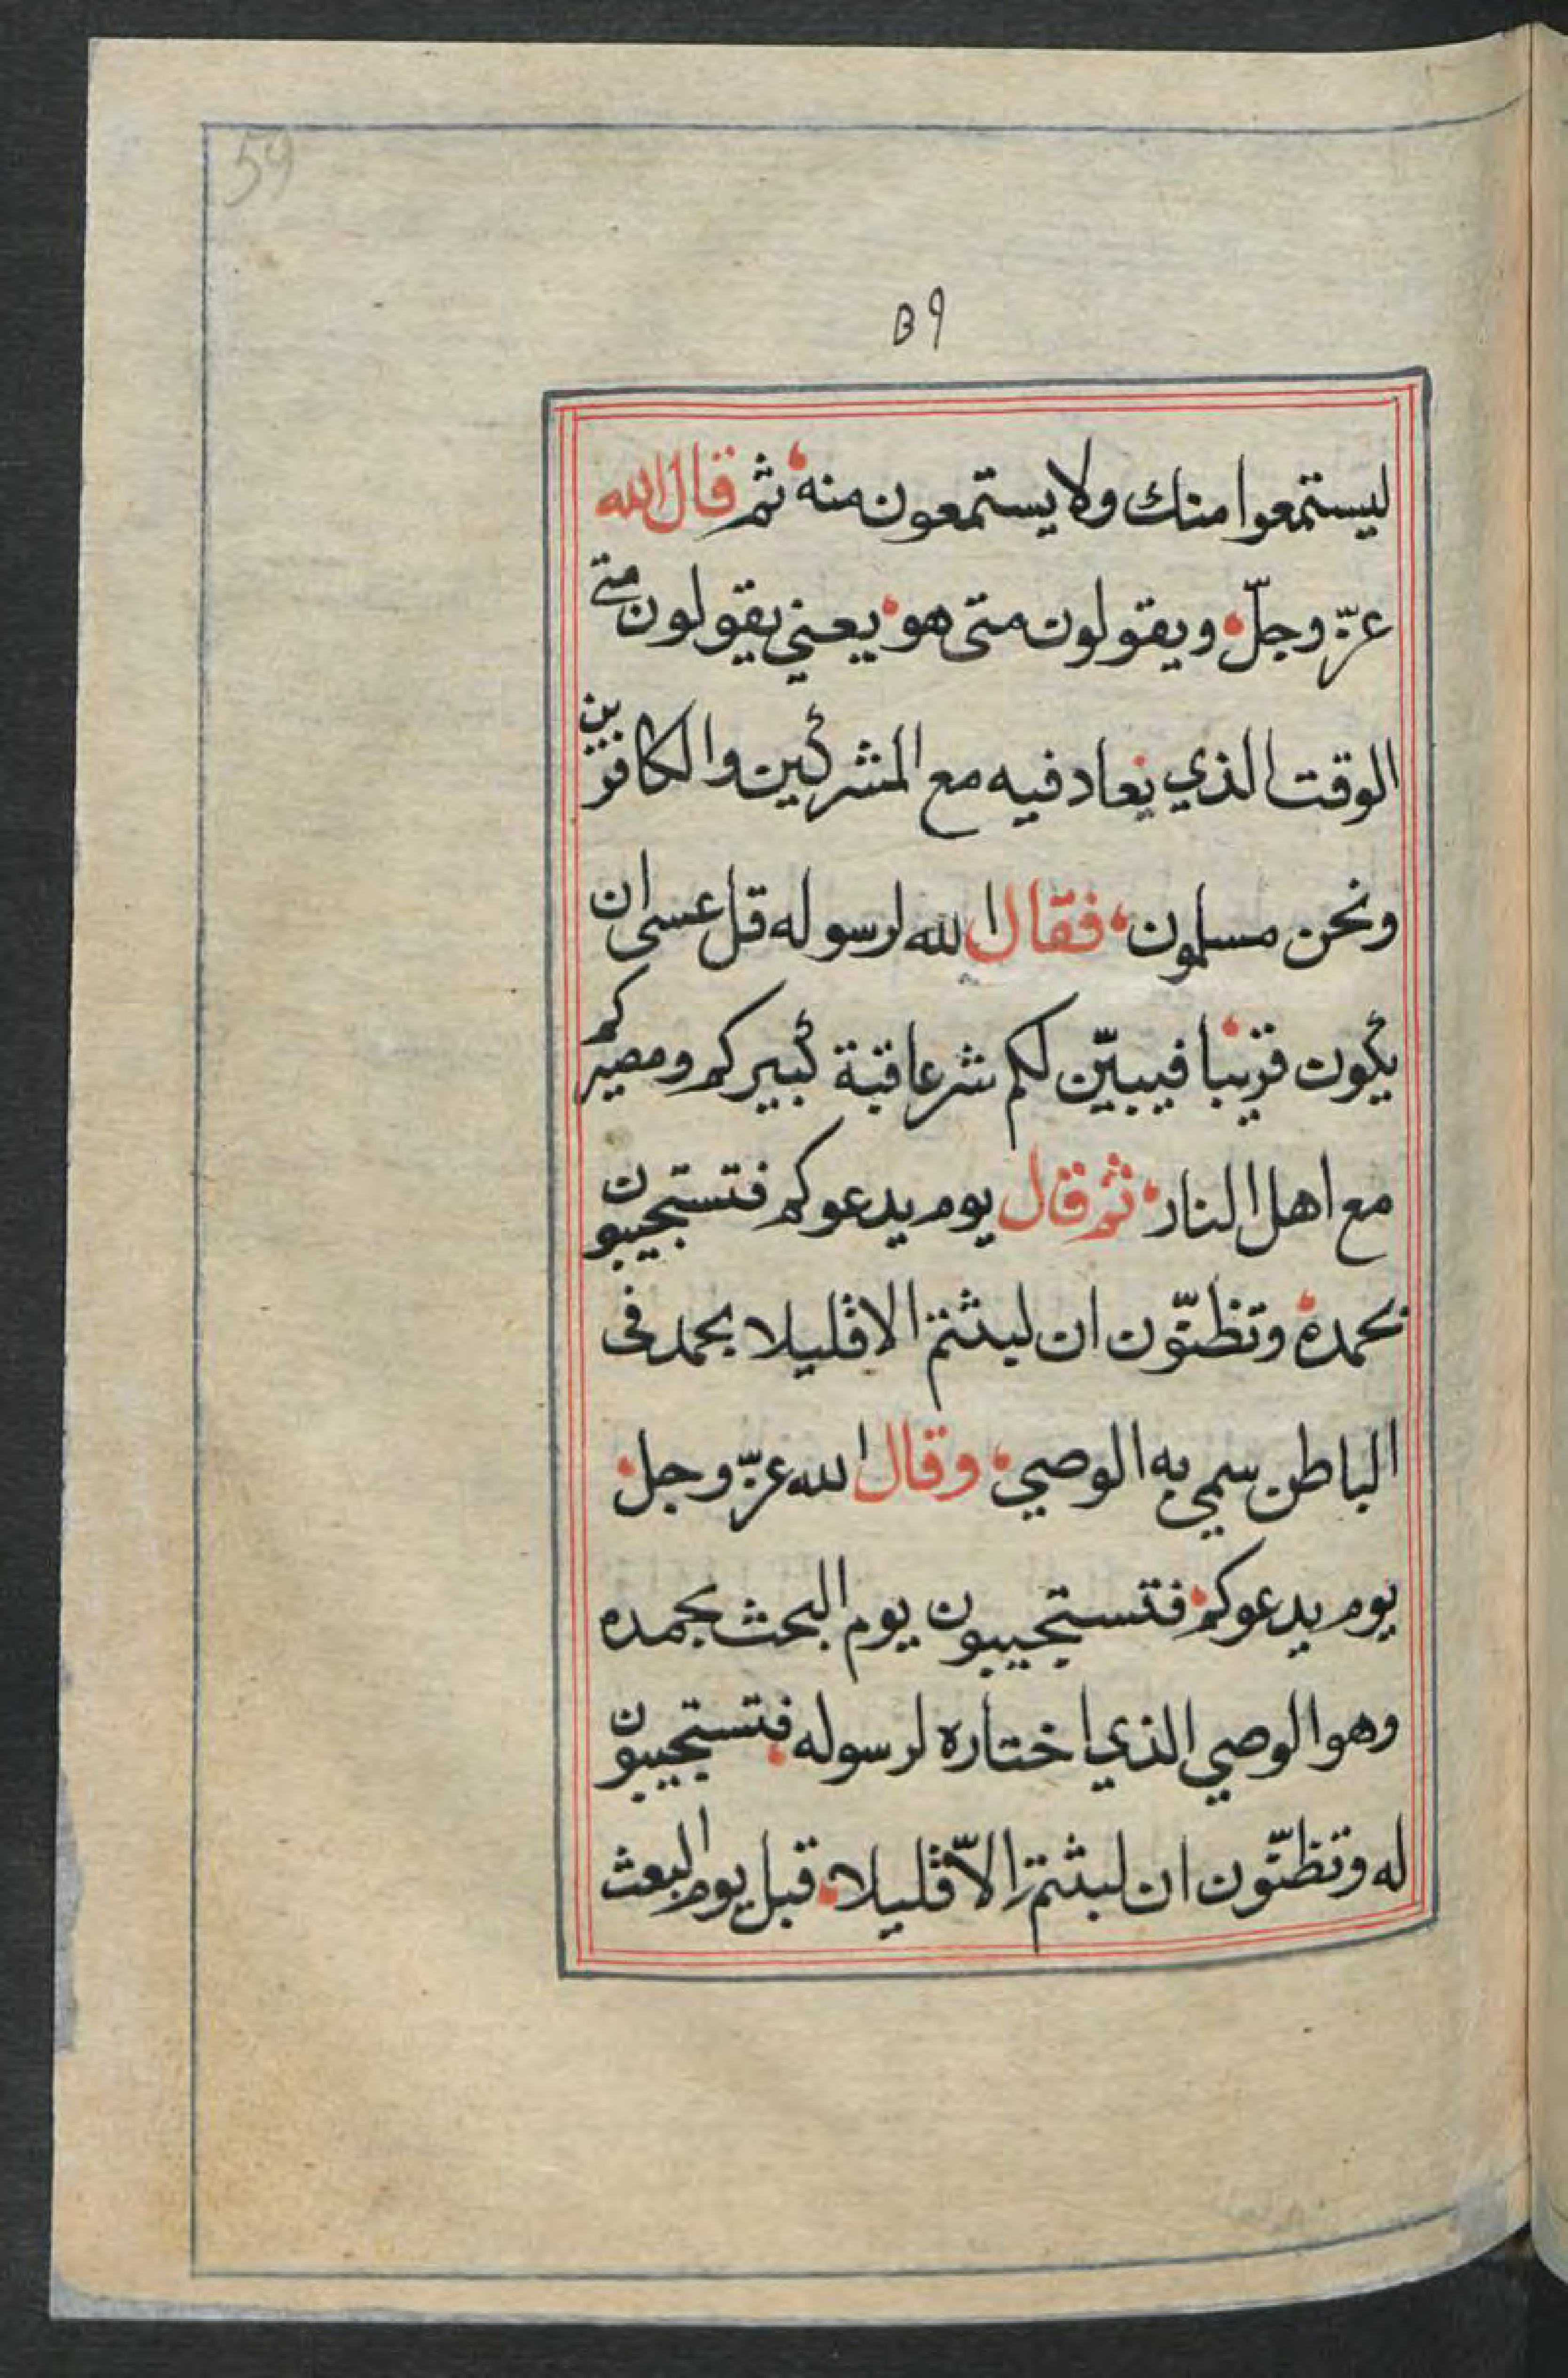 59
٥٩
ليستمعوا منك ولا يستمعون منه ثم قال الله
عزّ وجلّ ويقولون متى هو يعني يقولون متى
الوقت الذي نعاد فيه مع المشركين والكافرين
ونحن مسلمون فقال الله لرسوله قل عسى ان
يكون قريبا فيبيّن لكم شر عاقبة كبيركم ومصيركم
مع اهل النار ثم قال يوم يدعوكم فتستجيبون
بحمده وتظنّون ان لبثتم الا قليلا بحمد فى
الباطن سمي به الوصي وقال الله عزّ وجل
يوم يدعوكم فتستجيبون يوم البحث بحمده
وهو الوصي الذي اختاره لرسوله فتستجيبون
له وتظنّون ان لبثتم إلاّ قليلا قبل يوم البعث